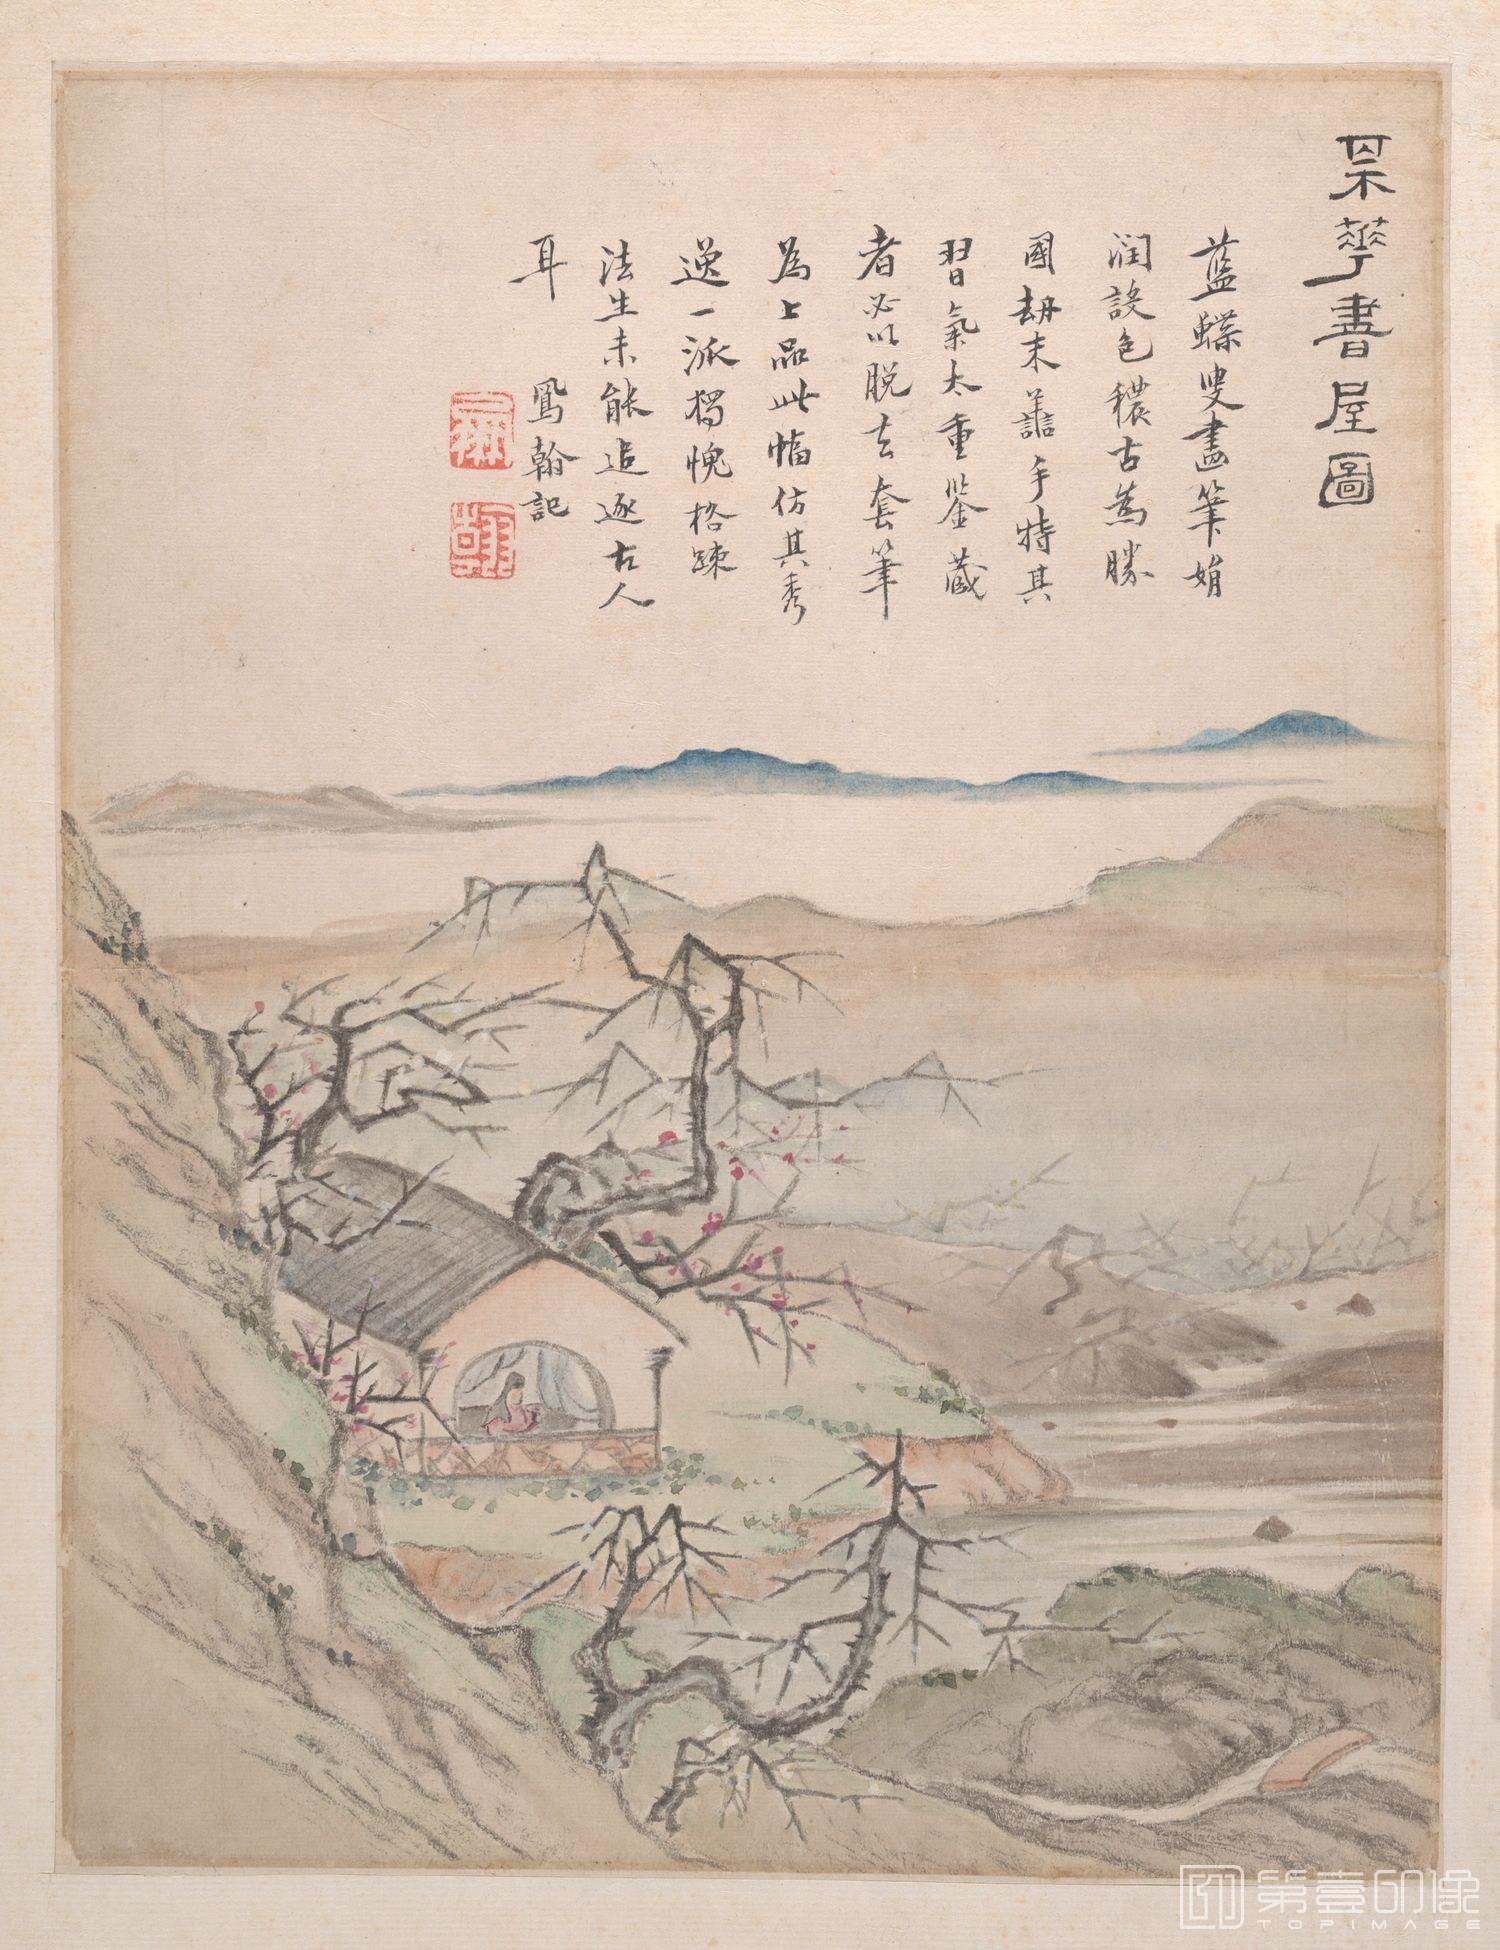 某華書屋圖
藍蝶叟畫筆娟
潤設色穠古為勝
國劫末善諸手特其
習氣太重鑒藏
者必以脫去套筆
為上品此幅仿其秀
逸一派獨愧格踈
法生未能追逐古人
耳
鳳翰記
第壹印像
TOPIMAGE